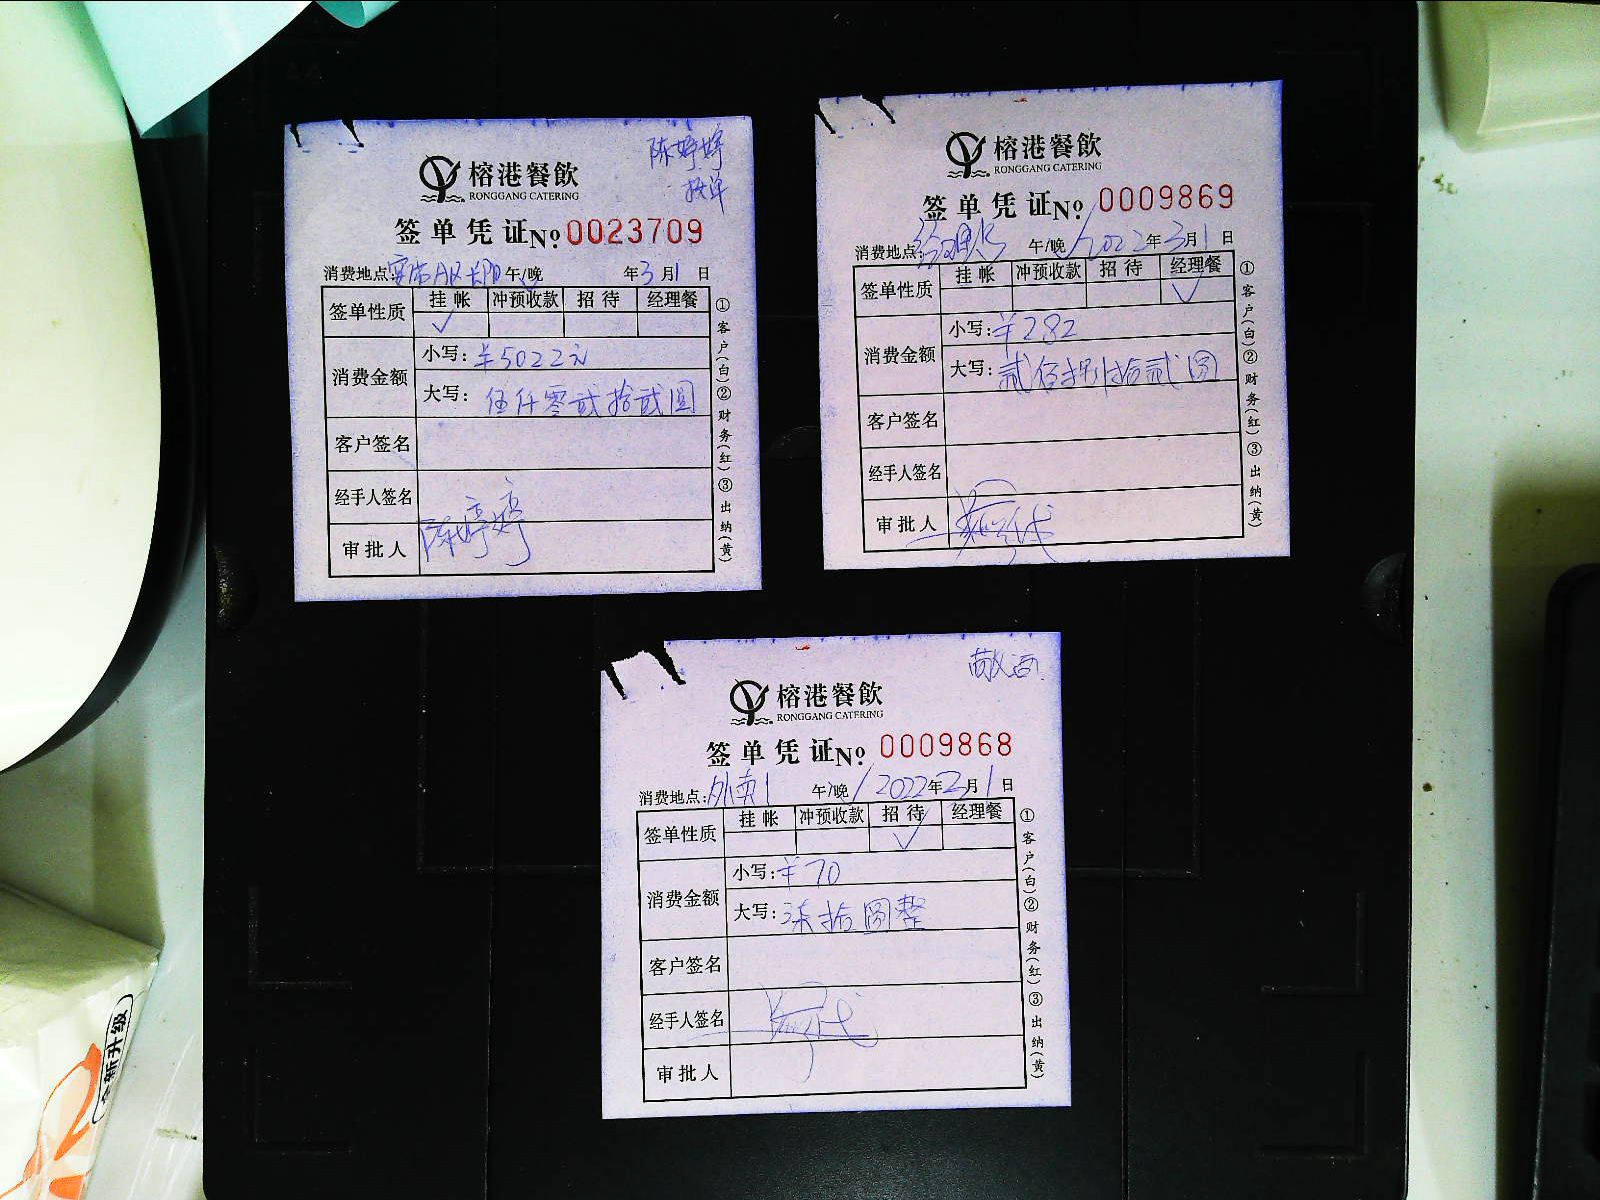 陈婷婷
按单
榕港餐飲
RONGGANG CATERING
签单凭证No 0023709
消费地点: 午/晚 年3月1日
签单性质 挂帐 冲预收款 招待 经理餐
✓
消费金额 小写: ¥5022元
大写: 伍仟零贰拾贰圆
客户签名
经手人签名
审批人 陈婷婷
①客户(白)②财务(红)③出纳(黄)
榕港餐飲
RONGGANG CATERING
签单凭证No 0009869
消费地点: 午/晚 2022年3月1日
签单性质 挂帐 冲预收款 招待 经理餐
✓
消费金额 小写: ¥282
大写: 贰佰捌拾贰圆
客户签名
经手人签名
审批人
①客户(白)②财务(红)③出纳(黄)
敬酒
榕港餐飲
RONGGANG CATERING
签单凭证No 0009868
消费地点: 外卖1 午/晚 2022年3月1日
签单性质 挂帐 冲预收款 招待 经理餐
✓
消费金额 小写: ¥70
大写: 柒拾圆整
客户签名
经手人签名
审批人
①客户(白)②财务(红)③出纳(黄)
全新升级